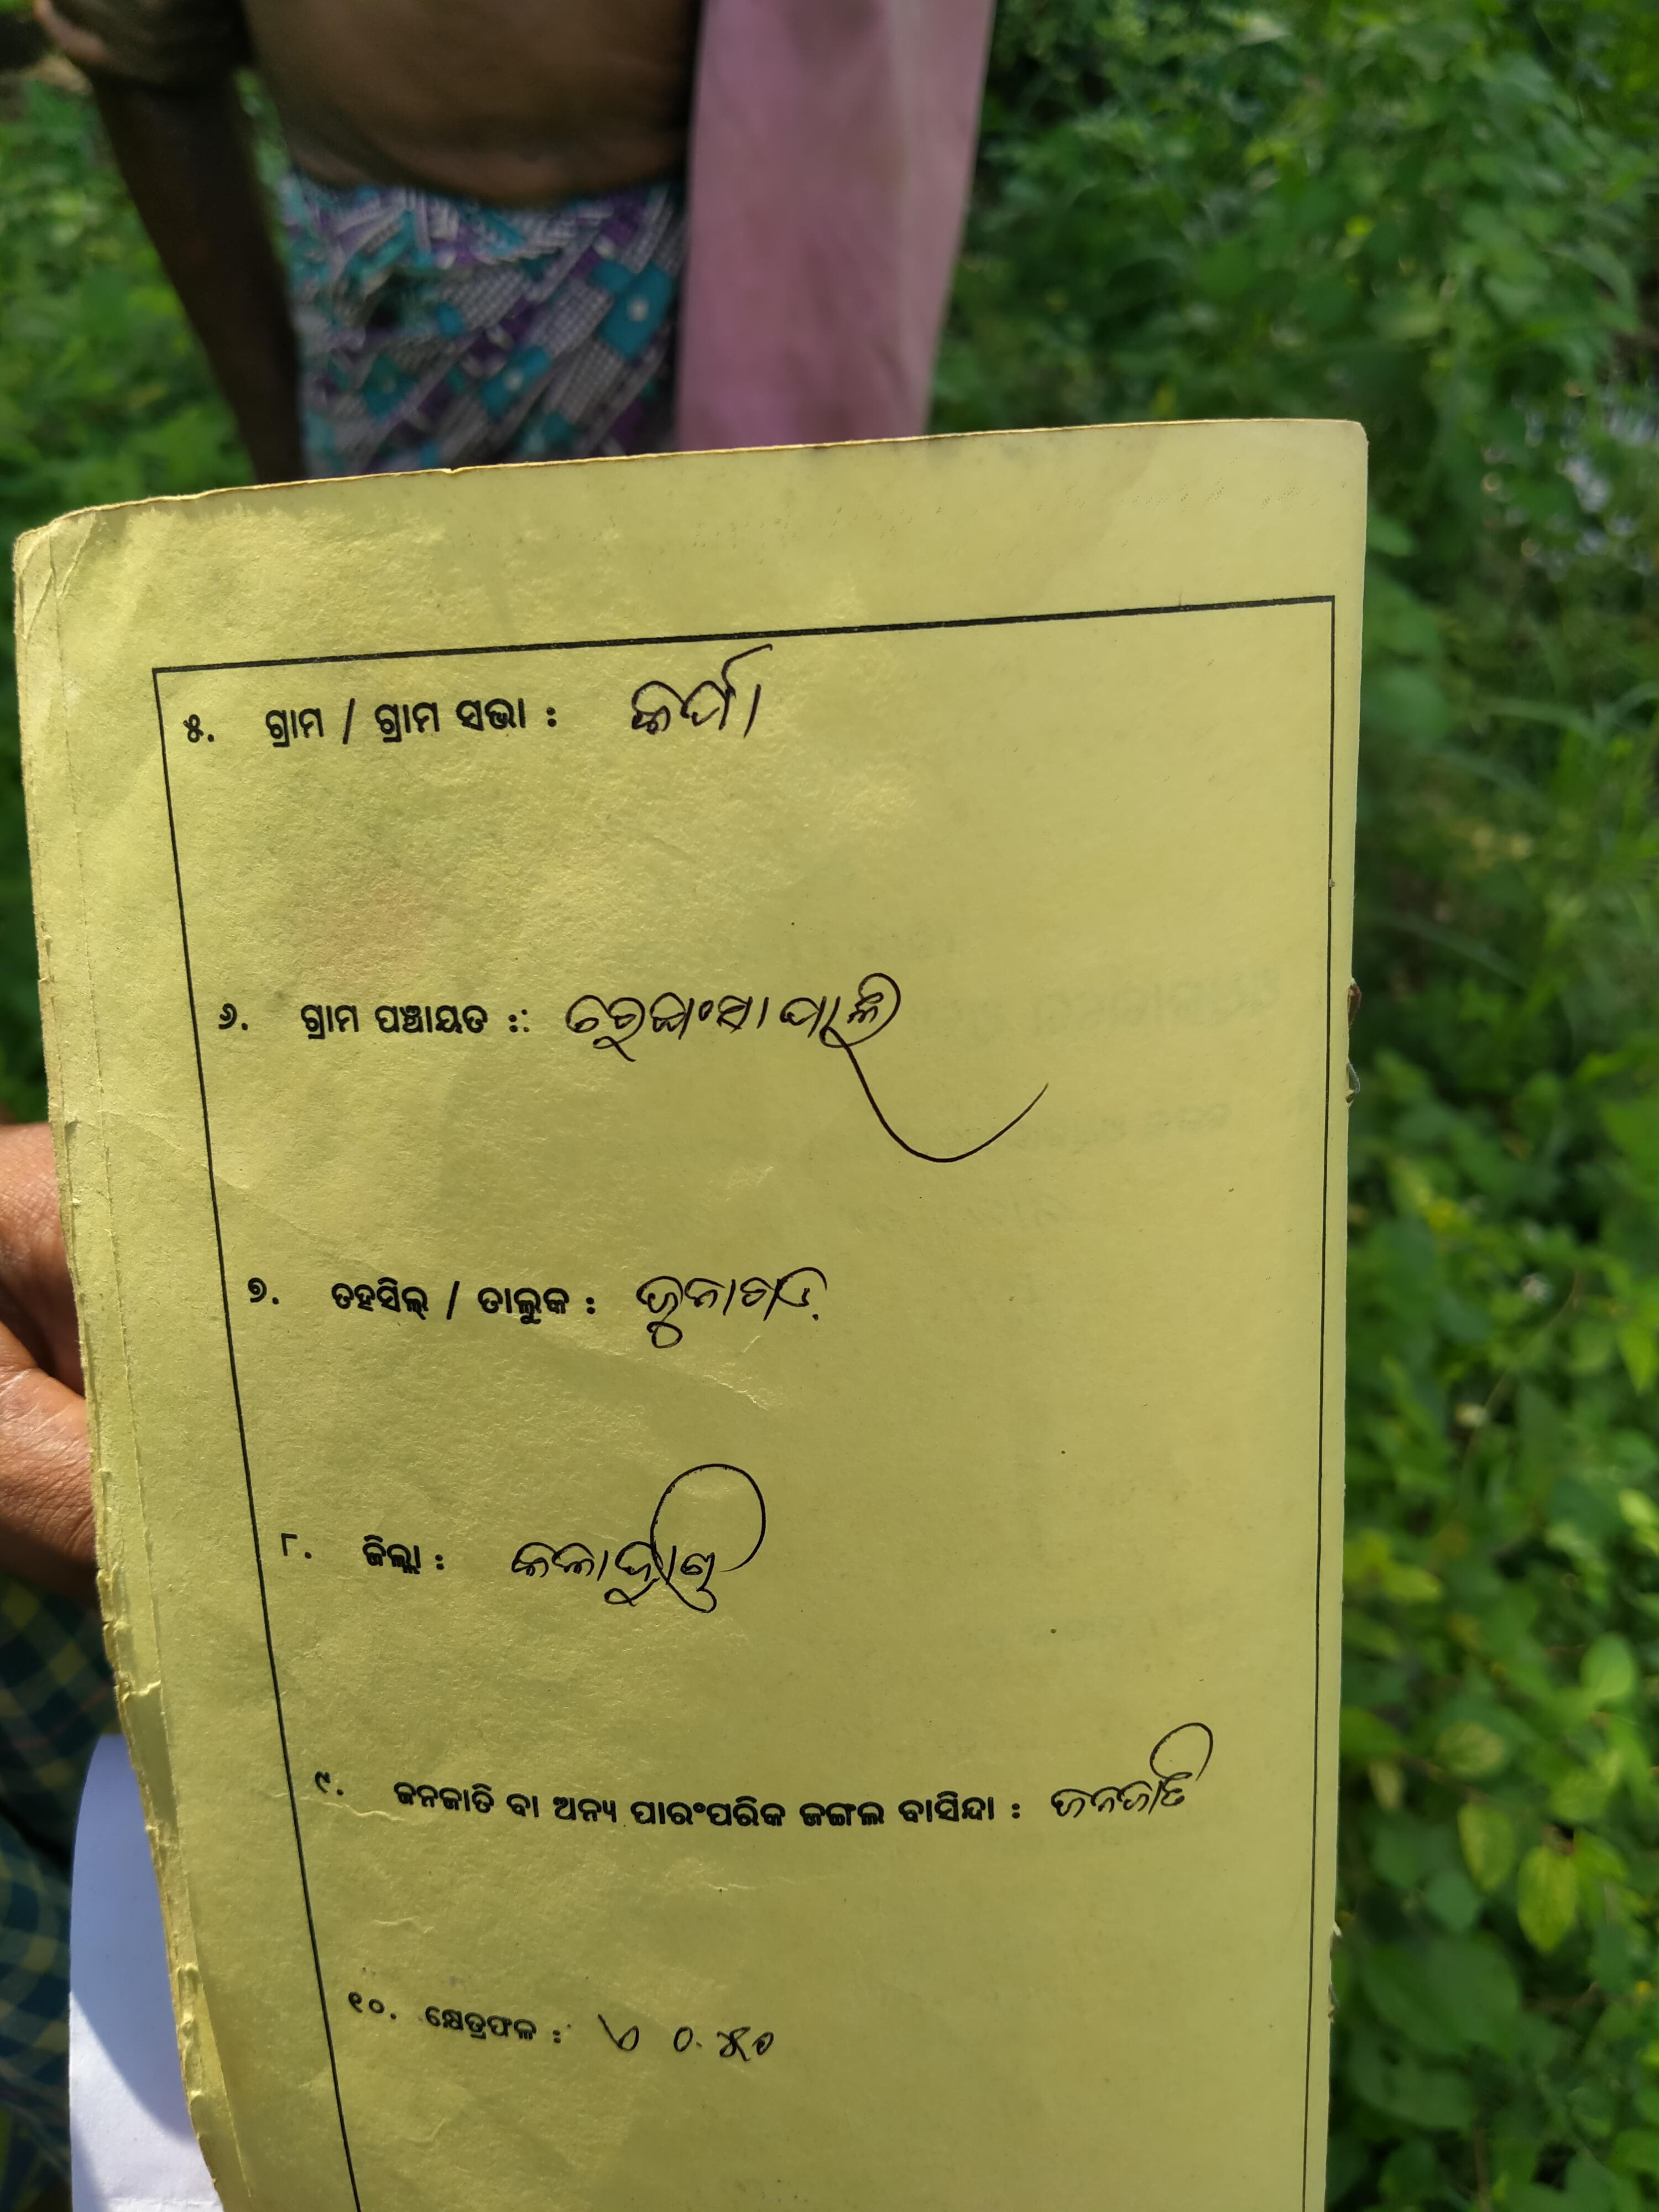 ୫. ଗ୍ରାମ / ଗ୍ରାମ ସଭା : କର୍ମା
୬. ଗ୍ରାମ ପଞ୍ଚାୟତ :: ତେଜଂସାପାଲି
୭. ତହସିଲ୍ / ତାଲୁକ : ଜୁନାଗଡ଼
୮. ଜିଲ୍ଲା : କଳାହାଣ୍ଡି
୯. ଜନଜାତି ବା ଅନ୍ୟ ପାରଂପରିକ ଜଙ୍ଗଲ ବାସିନ୍ଦା : ଜନଜାତି
୧୦. କ୍ଷେତ୍ରଫଳ : ଏ ୦.୫୦